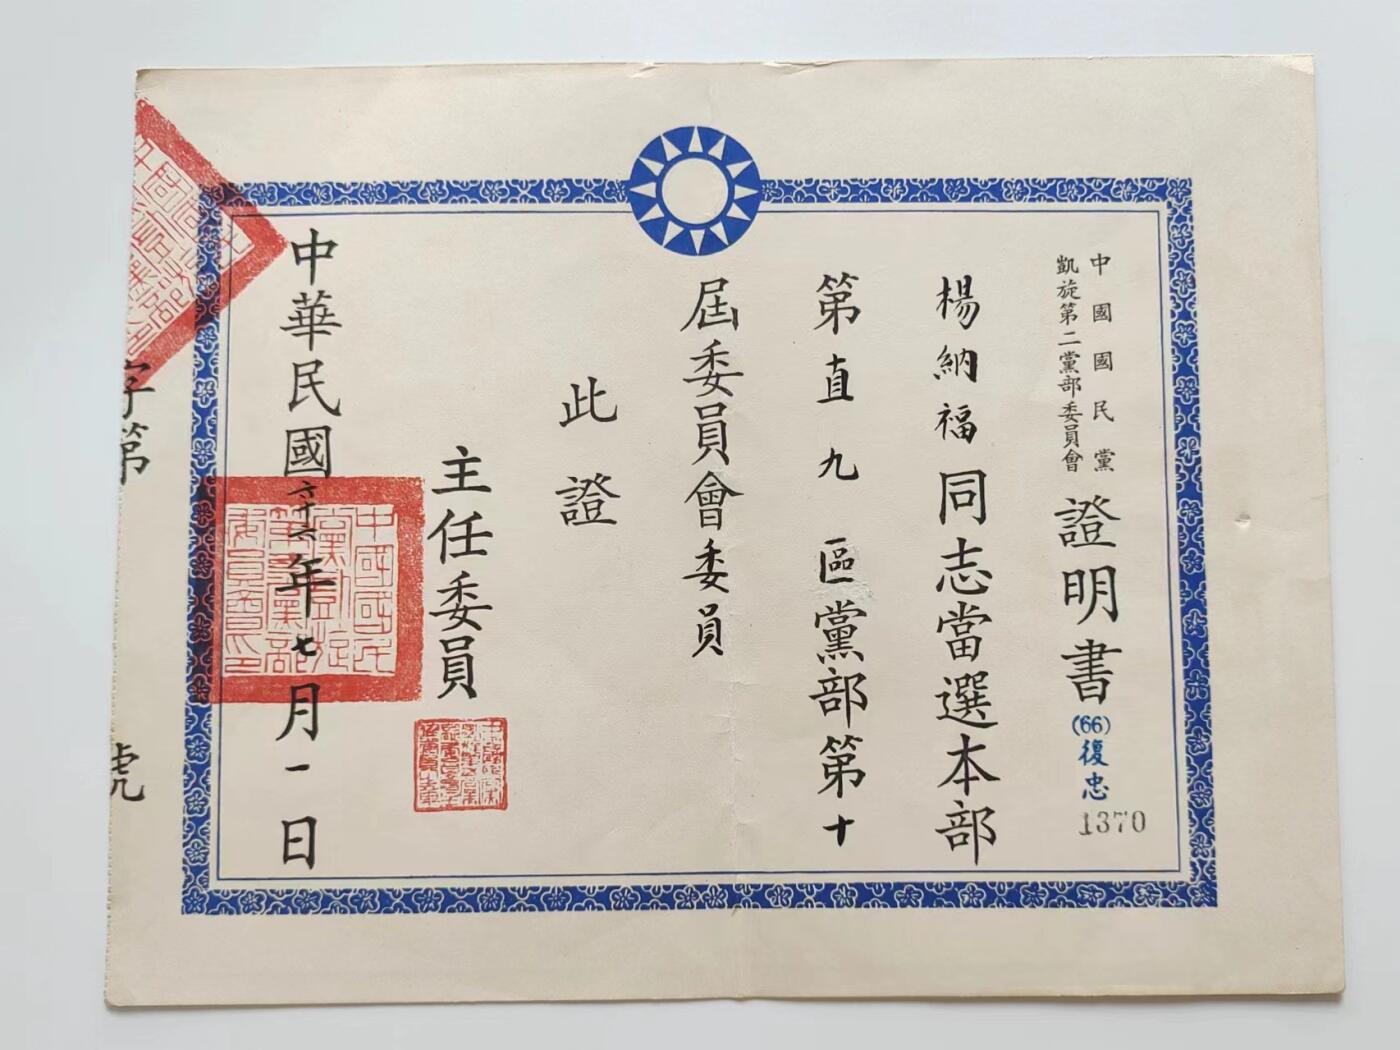 中國國民黨
凱旋第二黨部委員會
證明書
(66)復忠
1370
楊納福同志當選本部
第直九區黨部第十
屆委員會委員
此證
主任委員
中華民國六十六年七月一日
中國國民
黨凱旋
第二黨部
委員會印
字第 號